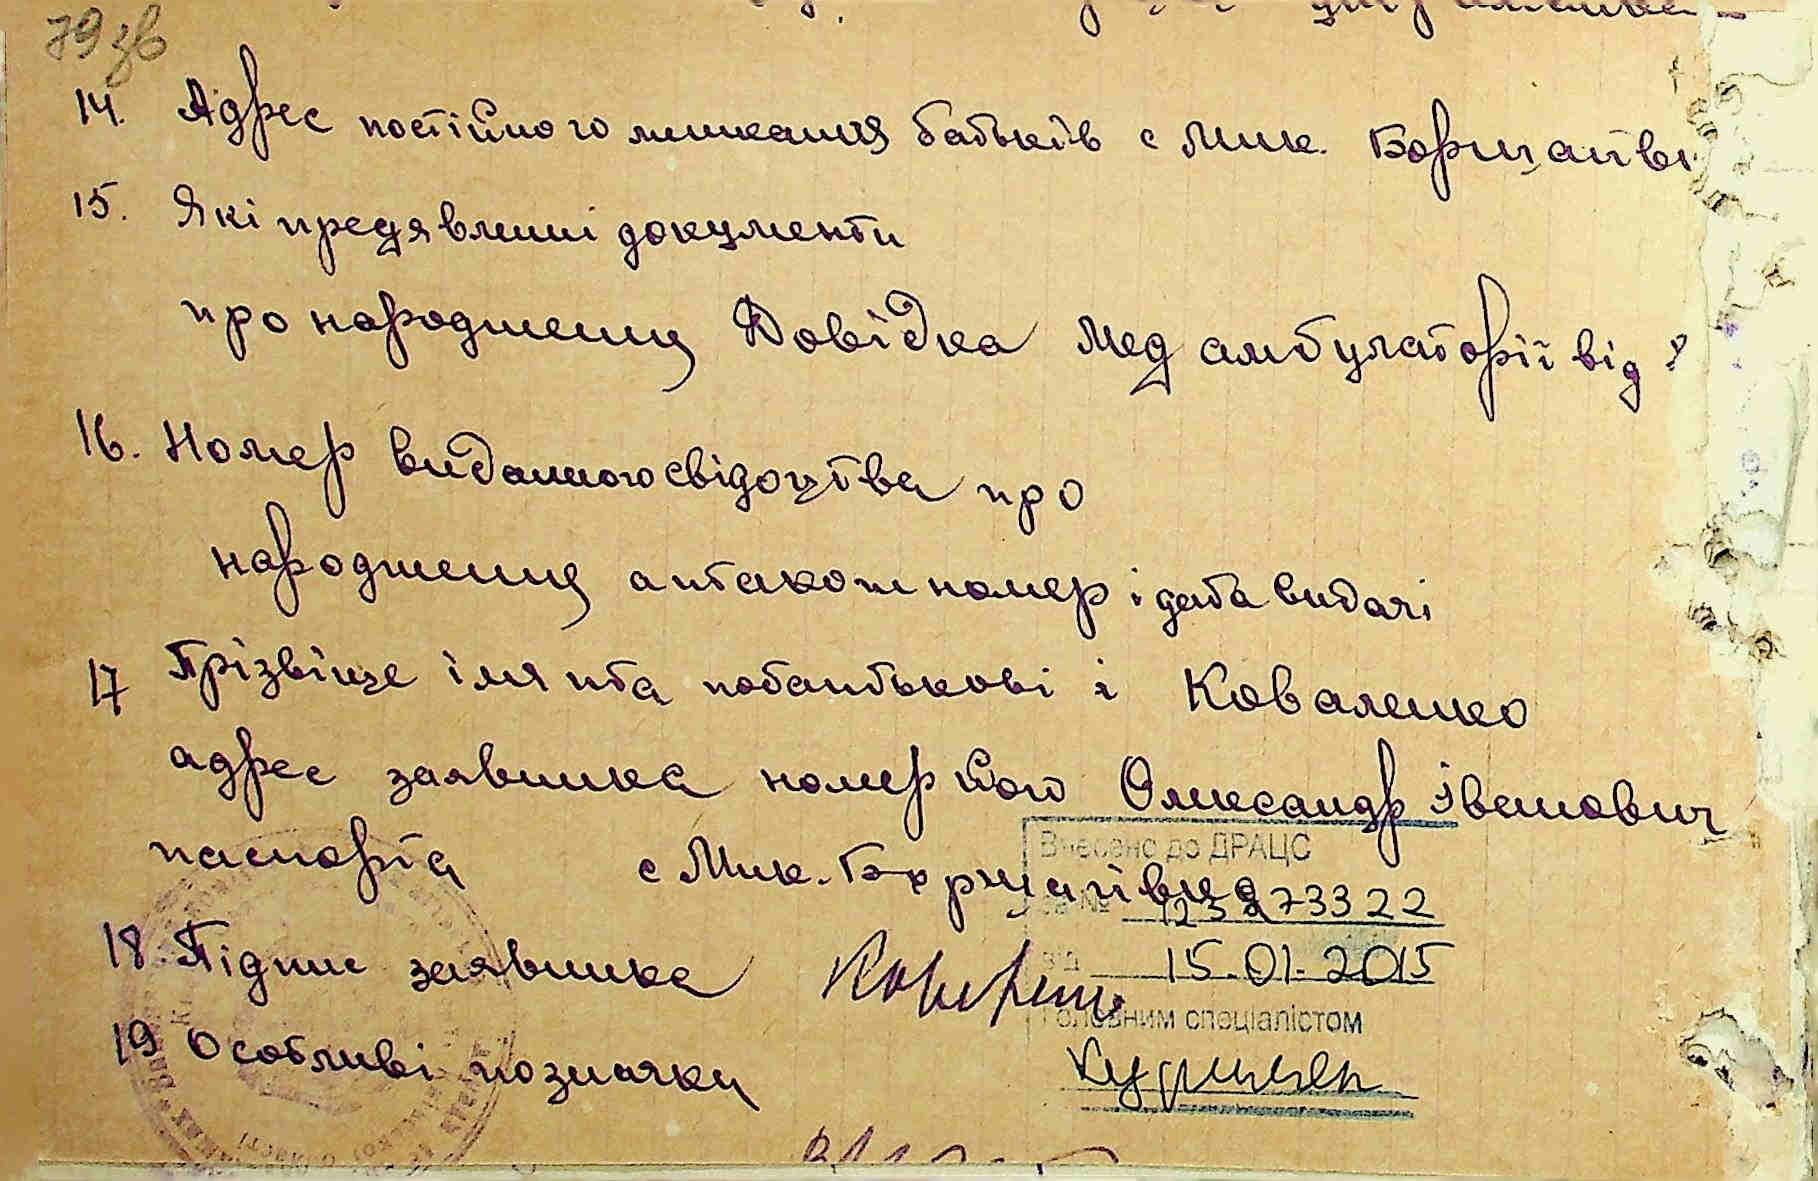 79 зв
14. Адрес постійного мешкання батьків с Мик. Борщагівк
15. Які предявлені документи
про народження Довідка Мед амбулаторії від 8
16. Номер виданного свідоцтва про
народження а також номер і дата видачі
17 Прізвіще імя та побатькові і Коваленко
адрес заявника номер його Олександр Іванович
паспорта с Мик. Борщагівка
18. Підпис заявника
19 Особливі позначки
Внесено до ДРАЦС
за № 123273322
від 15.01.2015
Головним спеціалістом